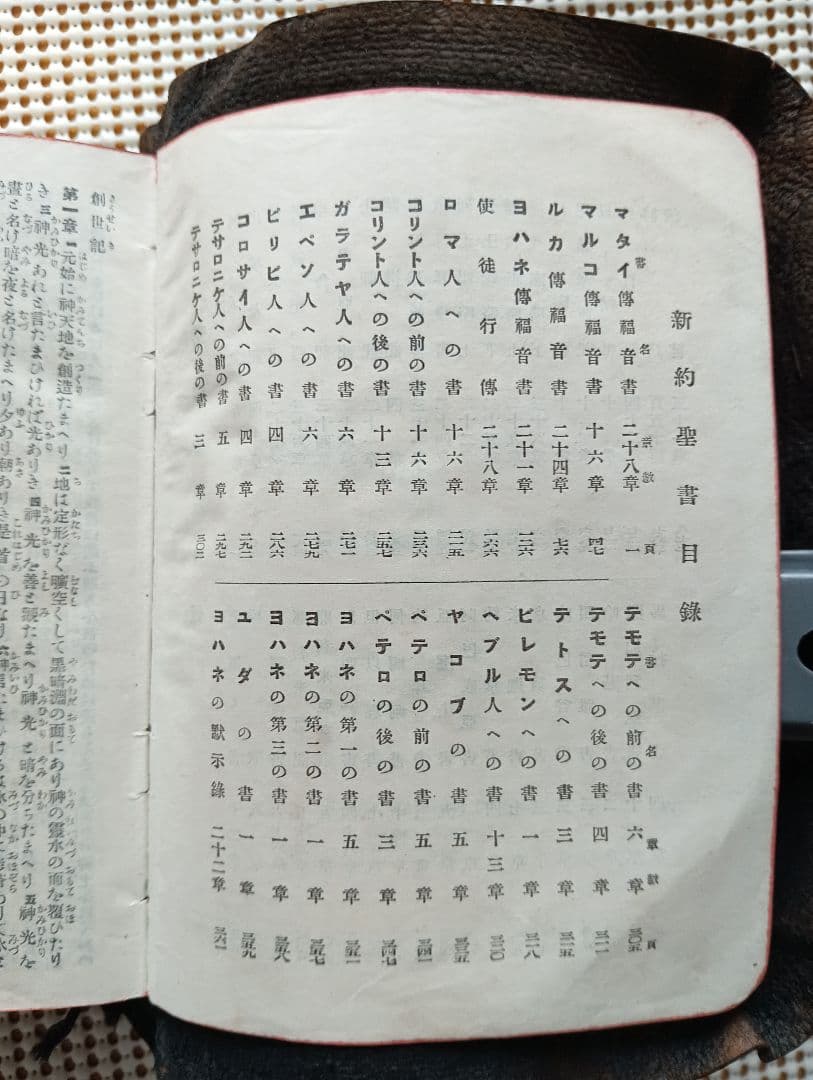 新約聖書目錄
書名 章數 頁
マタイ傳福音書 二十八章 一
マルコ傳福音書 十六章 四七
ルカ傳福音書 二十四章 七六
ヨハネ傳福音書 二十一章 一二六
使徒行傳 二十八章 一六六
ロマ人への書 十六章 二一五
コリント人への前の書 十六章 二三六
コリント人への後の書 十三章 二五七
ガラテヤ人への書 六章 二七一
エペソ人への書 六章 二七九
ピリピ人への書 四章 二八六
コロサイ人への書 四章 二九二
テサロニケ人への前の書 五章 二九七
テサロニケ人への後の書 三章 三〇二
書名 章數 頁
テモテへの前の書 六章 三〇五
テモテへの後の書 四章 三一一
テトスへの書 三章 三一五
ピレモンへの書 一章 三一八
ヘブル人への書 十三章 三二〇
ヤコブの書 五章 三三五
ペテロの前の書 五章 三四一
ペテロの後の書 三章 三四七
ヨハネの第一の書 五章 三五一
ヨハネの第二の書 一章 三五七
ヨハネの第三の書 一章 三五八
ユダの書 一章 三五九
ヨハネの默示錄 二十二章 三六一
創世記
第一章 一元始に神天地を創造たまへり 二地は定形なく曠空くして黑暗淵の面にあり神の靈水の面を覆ひたり
き 三神光あれと言たまひければ光ありき 四神光を善と觀たまへり神光と暗を分ちたまへり 五神光を
晝と名け暗を夜と名けたまへり夕あり朝ありき是首の日なり